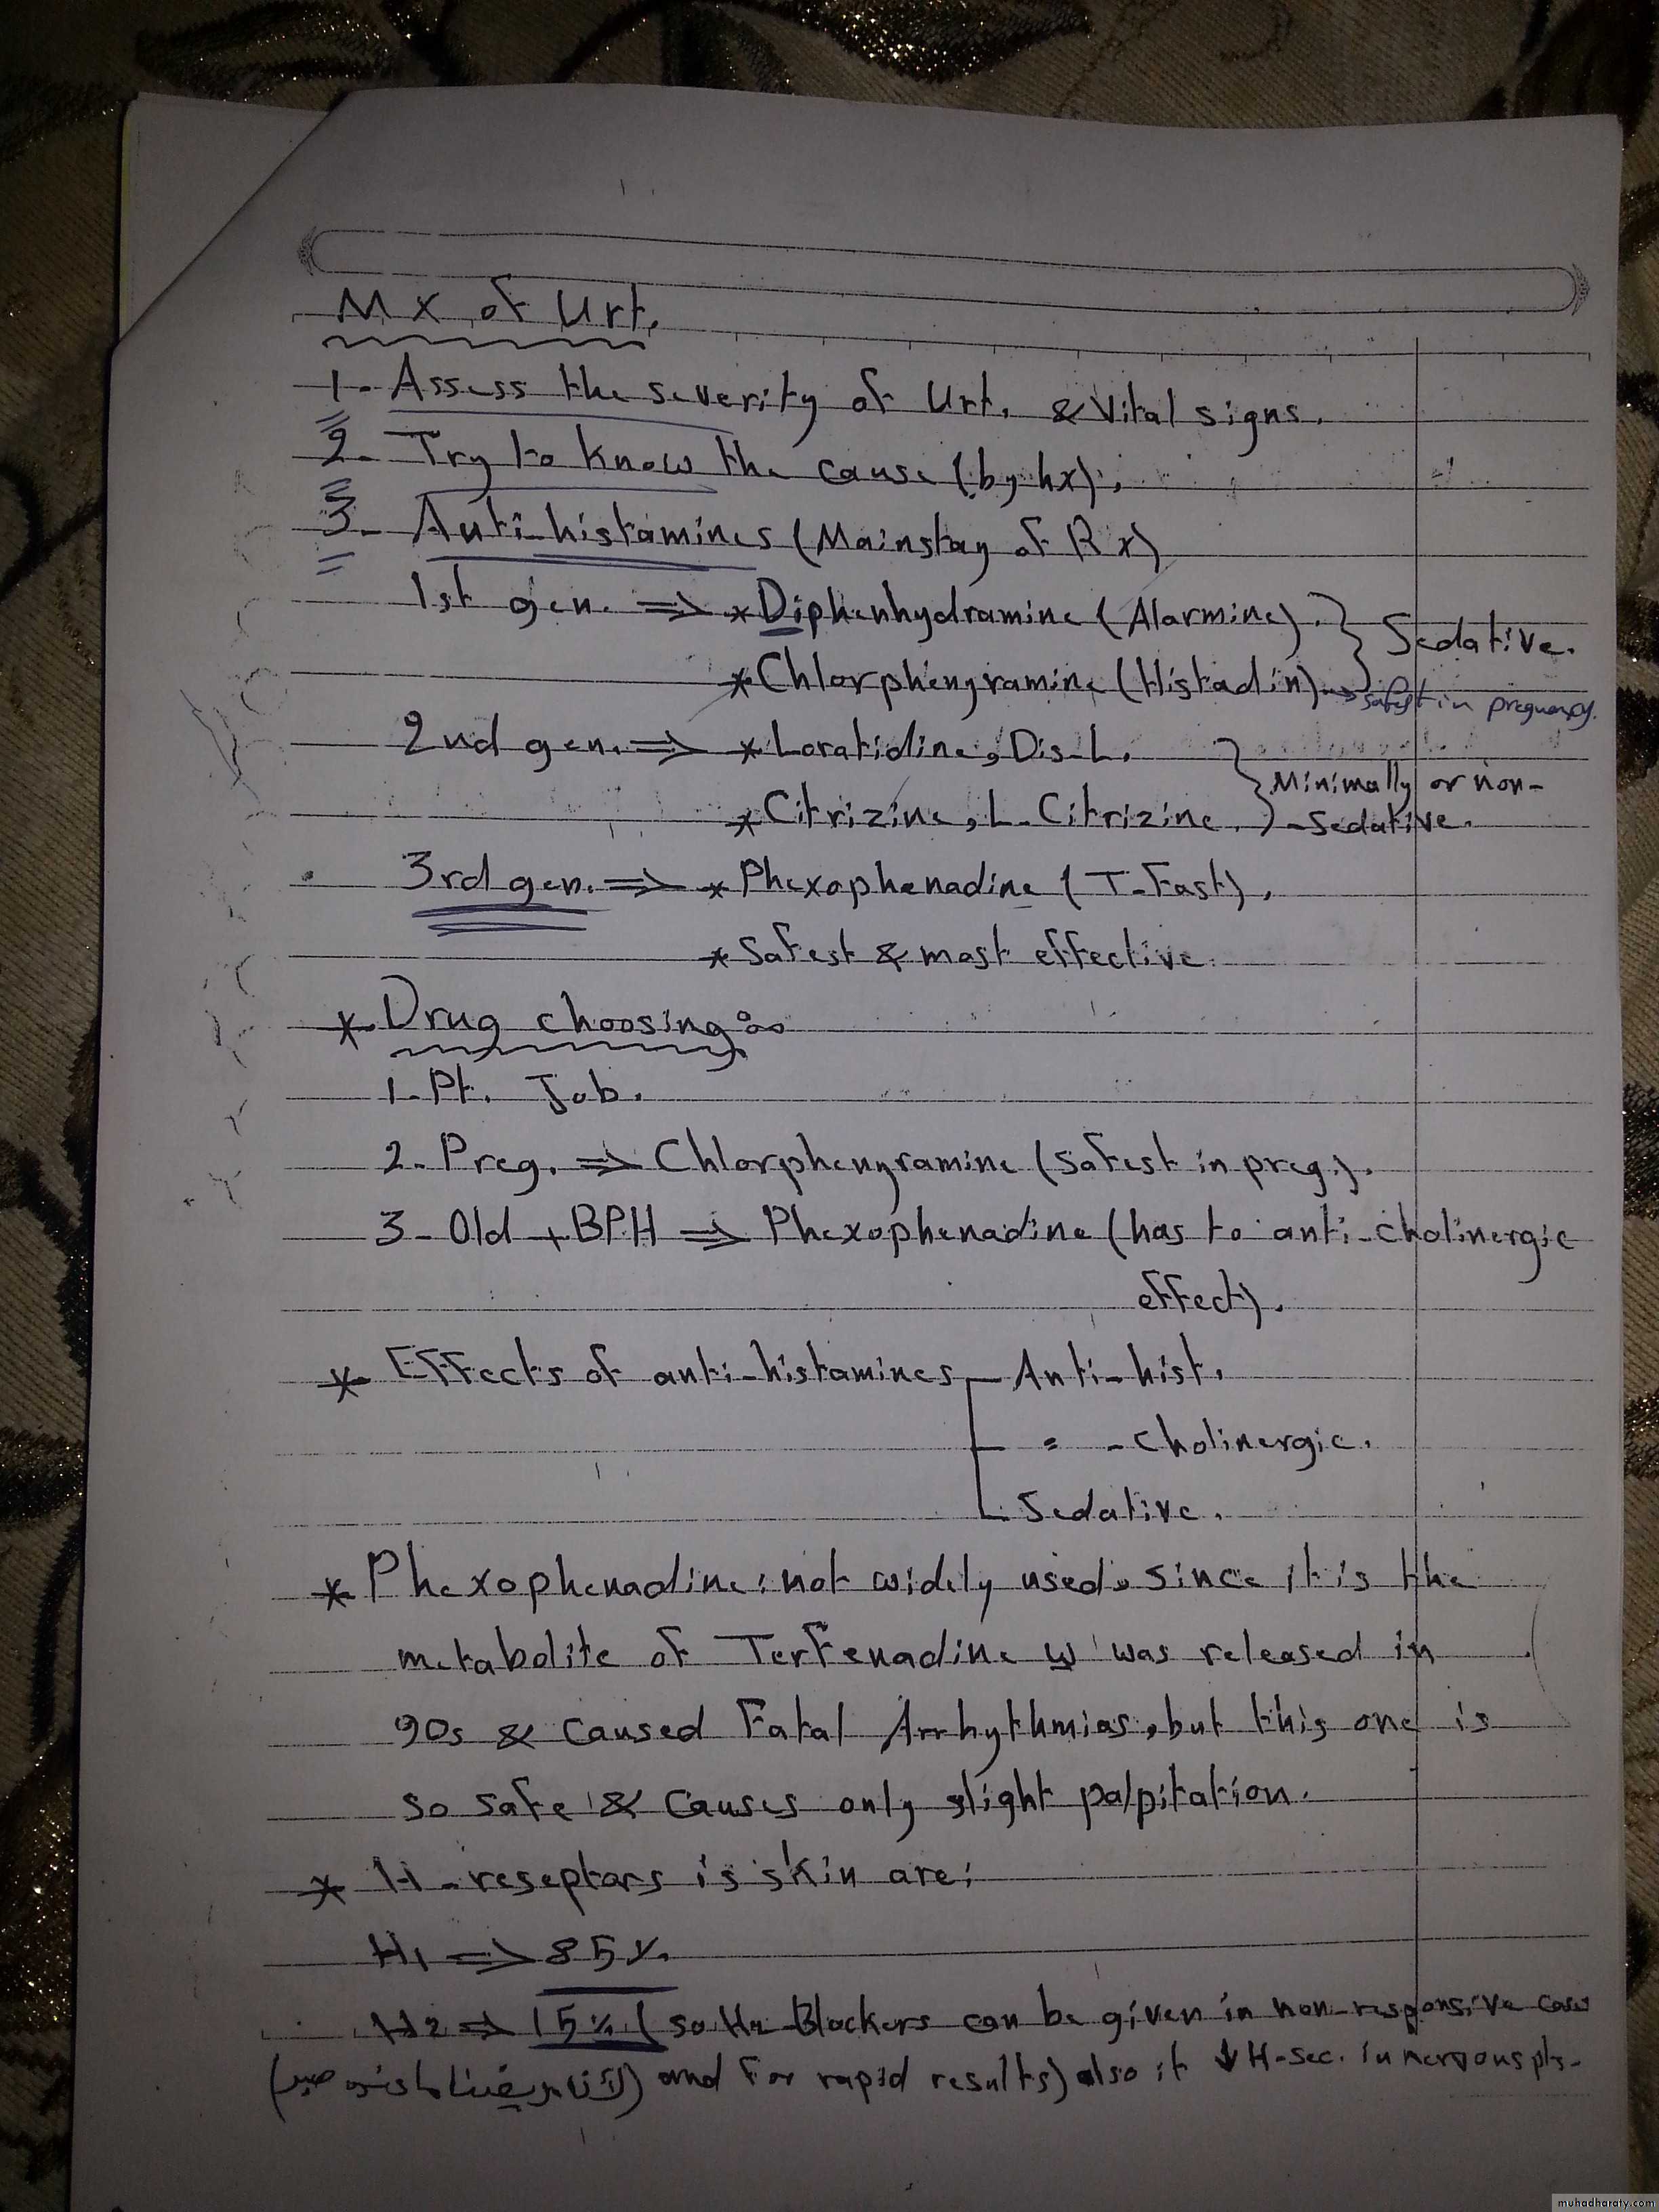 Mx of Urt.
1- Assess the severity of Urt. & Vital signs.
2- Try to know the cause (by hx).
3- Anti-histamines (Mainstay of Rx)
1st gen. ⇒ * Diphenhydramine (Alarmine). } Sedative.
* Chlorphenyramine (Histadin) → safest in pregnancy.
2nd gen. ⇒ * Loratidine, Dis-L. } Minimally or non-
* Citrizine, L-Citrizine. -Sedative.
3rd gen. ⇒ * Phexophenadine (T-Fast).
* Safest & most effective.
* Drug choosing:
1- Pt. Job.
2- Preg. ⇒ Chlorphenyramine (safest in preg.).
3- Old + BPH ⇒ Phexophenadine (has to anti-cholinergic
effect).
* Effects of anti-histamines Anti-hist.
= -cholinergic.
Sedative.
* Phexophenadine: not widely used, since it is the
metabolite of Terfenadine w was released in
90s & caused Fatal Arrhythmias, but this one is
so safe & causes only slight palpitation.
* H-reseptors is skin are:
H1 ⇒ 85%.
H2 ⇒ 15% (so H2-Blockers can be given in non-responsive cases
(لأن مريضنا ما عنده صبر) and for rapid results) also it ↓ H-sec. in nervous pts.
muhadharaty.com